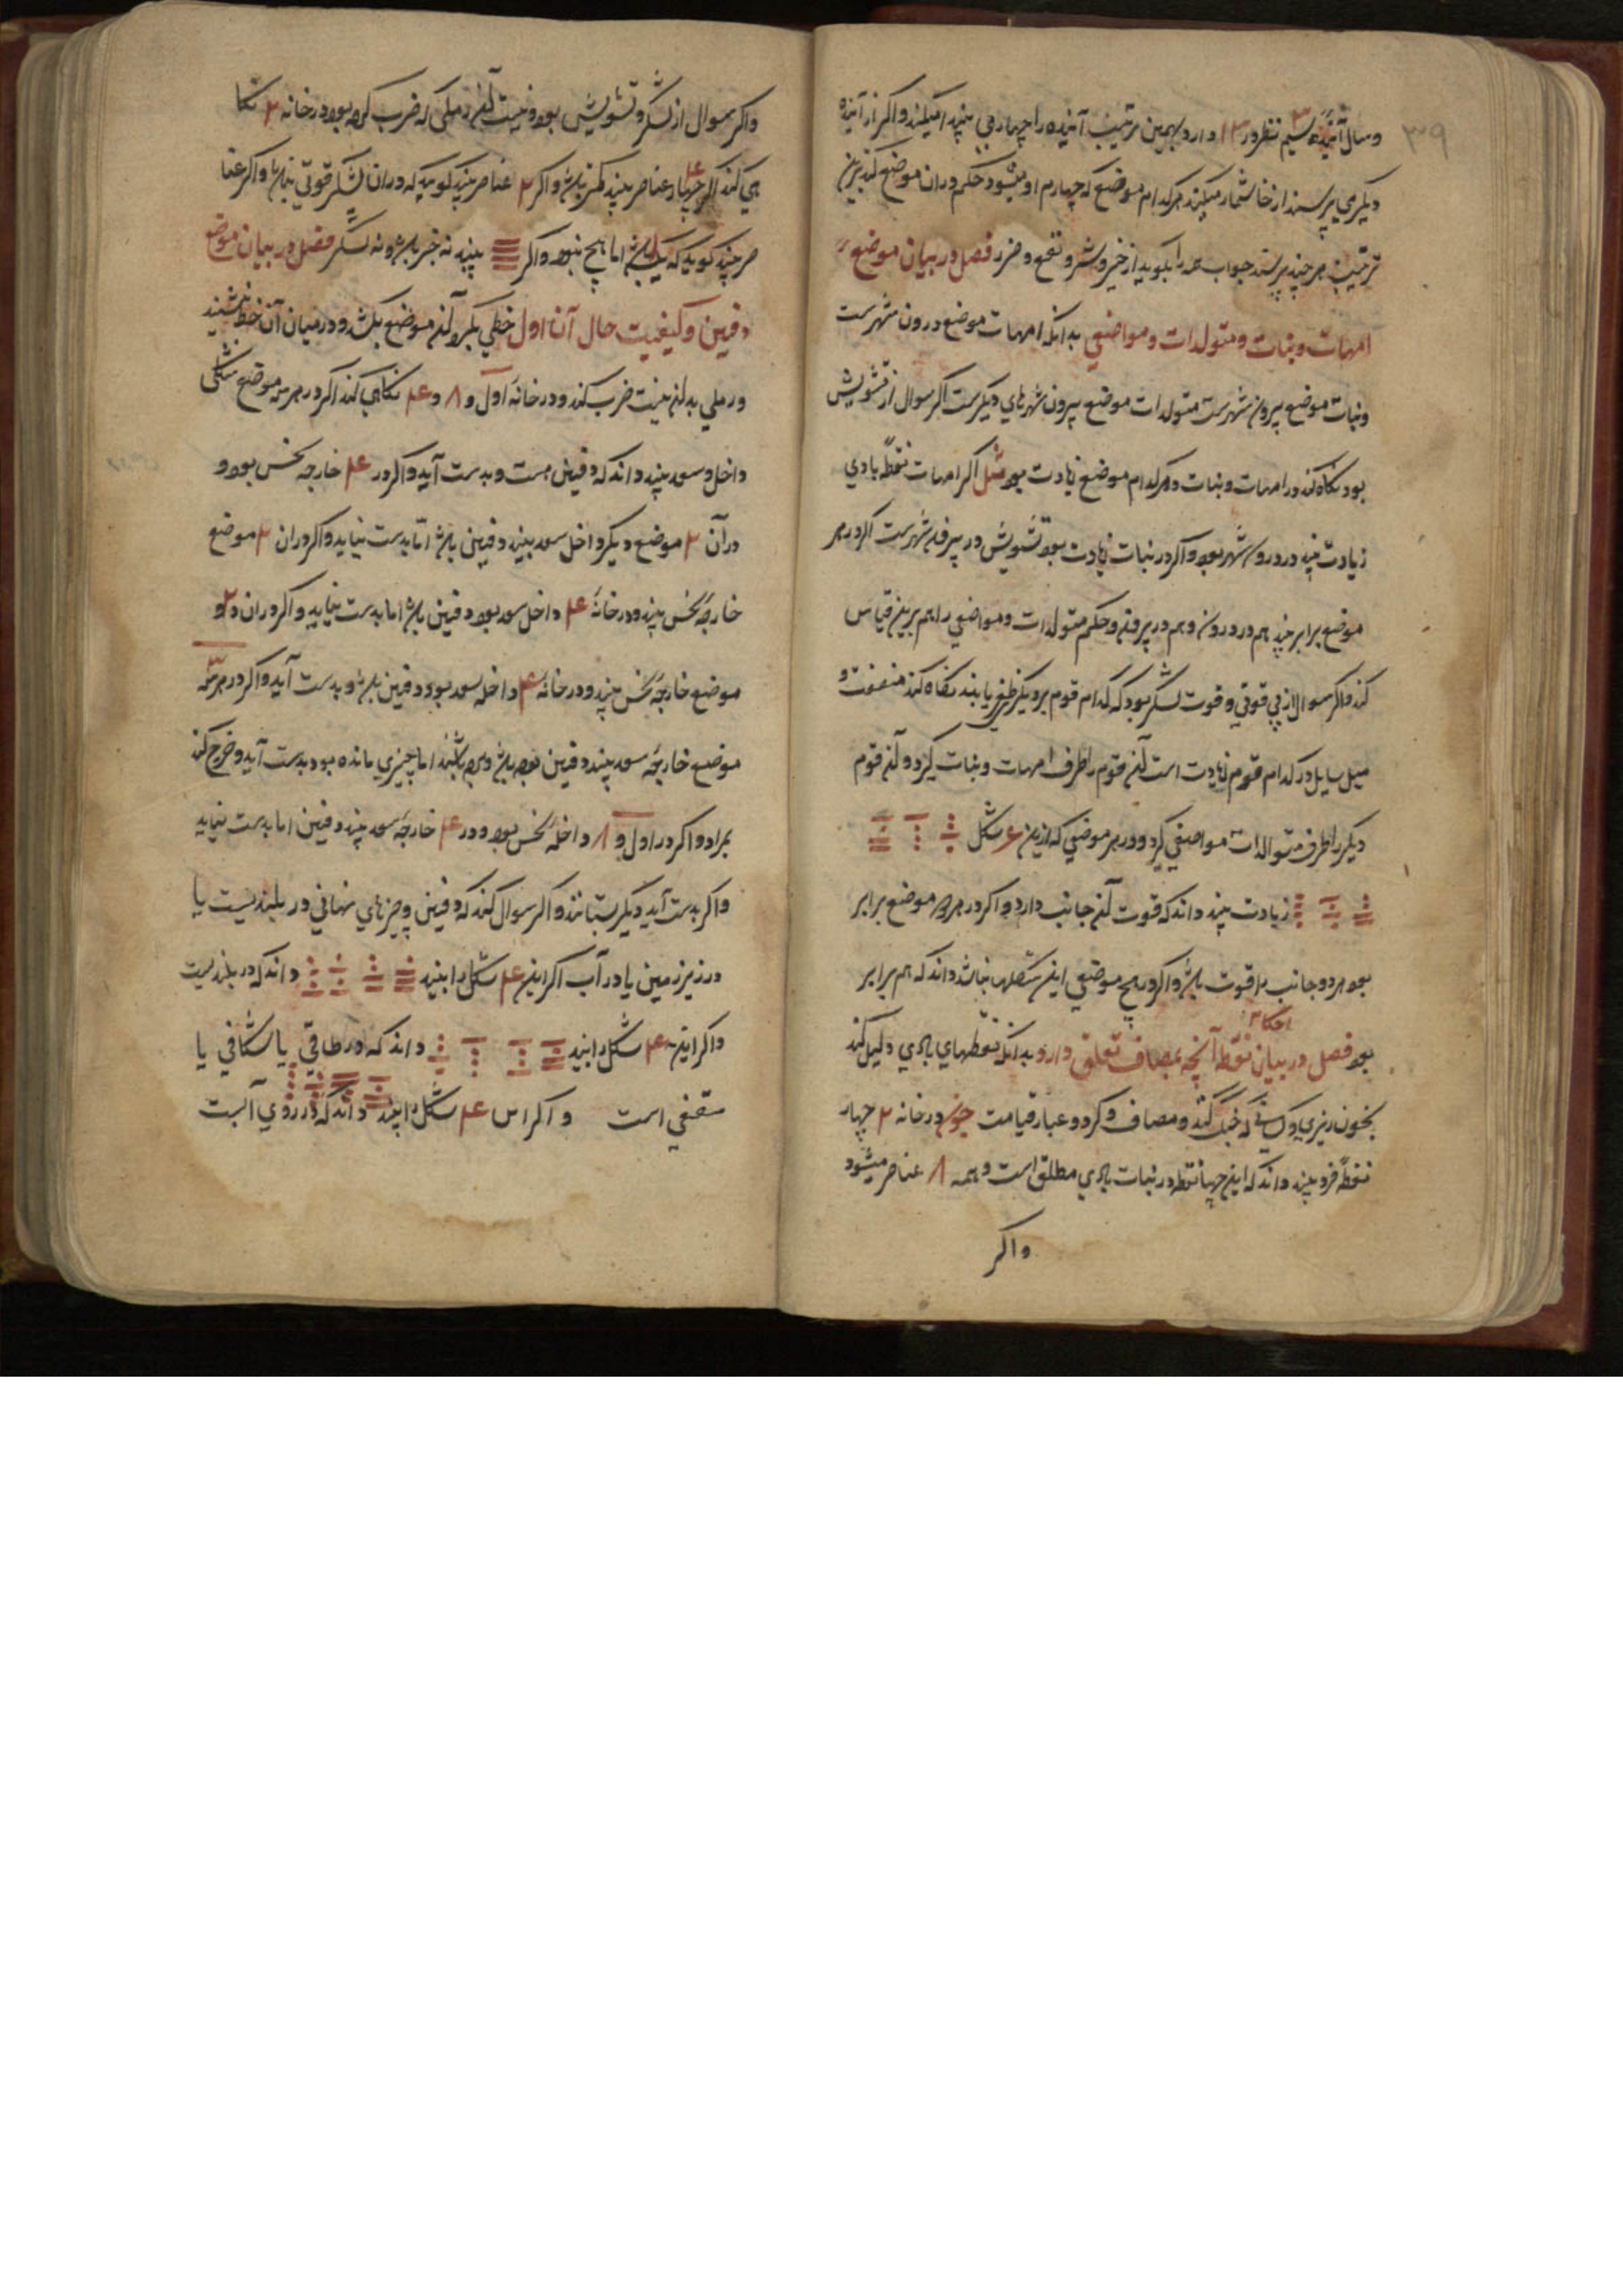 ۳۹
وسال آینده سیم نظر در ۱۳ دارد بهمین ترتیب آینده را چهار پی میکند و اکر از آینده
دیکری پرسند از خا شمار میکند هر کدام موضع که چهارم او میشود حکم در ان موضع کند برین
ترتیب هر چند پرسند جواب همه را بکوید از خیر و شر و نفع و ضرر فصل در بیان موضع
امهات و بنات و متولدات و مواضعی بدانکه امهات موضع درون شهرست
و بنات موضع بیرون شهرست متولدات موضع بیرون شهرهای دیکرست اکر سوال از تشویش
بود نکاه کند در امهات و بنات در هر کدام موضع زیادت بود مثل اکر امهات نقطهٔ بادی
زیادت بیند در درون شهر بود و اکر در بنات زیادت بود تشویش در بیرون شهرست اکر در هر
موضع برابر بیند هم در درون و هم در بیرون و حکم متولدات و مواضعی را هم برین قیاس
کند و اکر سوال از بی قوتی و قوت لشکر بود که کدام قوم بر دیکر ظفر یابند نکاه کند منفعت و
میل سایل در کدام قوم زیادت است آن قوم را طرف امهات و بنات کیرد و آن قوم
دیکر را طرف متوالدات مواضعی کیرد و در هر موضعی که ازین ۶ شکل
زیادت بیند داند که قوت آن جانب دارد و اکر در هر دو موضع برابر
بود هر دو جانب را قوت باشد و اکر در هیچ موضعی این شکلها نباشد داند که هم برابر
احکام
بود فصل در بیان نقطه آنچه بمصاف تعلق دارد بدانکه نقطهای بادی دلیل کند
بخون ریزی و کسانی که جنک کند و مصاف و کرد و غبار قیامت چون در خانه ۲ چهار
نقطهٔ فرد بیند داند که این چهار نقطه در بنات بادی مطلق است و همه ۸ عناصر میشود
واکر
واکر سوال از لشکر و تشویش بود و نیت آن رملی که ضرب کرده بود در خانه ۲ نکا
هی کند اکر چهار عناصر بیند کمتر باشد و اکر ۲ عناصر بیند کوید که در ان لشکر قوتی نباشد و اکر عنا
صر بیند کوید که باشد اما هیچ نبود و اکر بیند نه خبر باشد و نه لشکر فصل در بیان موضع
دفین و کیفیت حال آن اول خطی بکرد آن موضع بکشد و در میان آن خط نشیند
و رملی بدان نیت ضرب کند و در خانهٔ اول و ۸ و ۴ نکاهی کند اکر در هر سه موضع شکلی
داخل و سعد بیند داند که دفین هست و بدست آید و اکر در ۴ خارجه نحس بود و
در آن ۲ موضع دیکر داخل سعد بیند دفین باشد اما بدست نیاید و اکر در ان ۲ موضع
خارجهٔ نحس بیند و در خانهٔ ۴ داخل سعد بود دفین باشد اما بدست نیاید و اکر در ان دو
موضع خارجهٔ نحس بیند و در خانهٔ ۴ داخل سعد بود دفین باشد و بدست آید و اکر در هر سه
موضع خارجهٔ سعد بیند دفین بوده باشد و برده باشند اما چیزی مانده بود بدست آید و خرج کند
بمراد و اکر در اول و ۸ داخلهٔ نحس بود و در ۴ خارجهٔ سعد بیند دفین اما بدست نیاید
و اکر بدست آید دیکر بستانند و اکر سوال کند که دفین و چیزهای نهانی در بلندیست یا
در زیر زمین یا در آب اکر این ۴ شکل را بیند داند که در بلندیست
و اکر این ۴ شکل را بیند داند که در طاقی یا شکافی یا
سقفی است و اکر اس ۴ شکل را بیند داند که در روی آبست